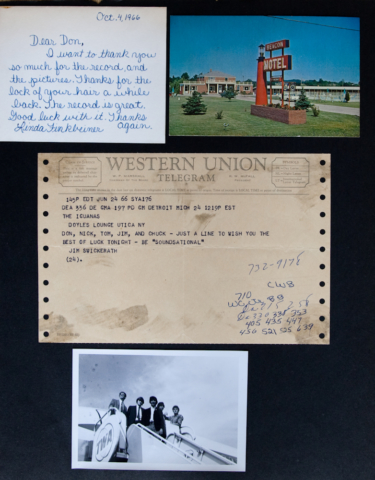 Oct. 4, 1966
Dear Don,
I want to thank you
so much for the record and
the pictures. Thanks for the
lock of your hair a while
back. The record is great.
Good luck with it. Thanks
again.
Linda Fenkbeiner
BEACON
MOTEL
WESTERN UNION
TELEGRAM
145P EDT JUN 24 66 SYA176
DEA 356 DE GRA 197 PD GR DETROIT MICH 24 1219P EST
THE IGUANAS
DOYLES LOUNGE UTICA NY
DON, NICK, TOM, JIM, AND CHUCK - JUST A LINE TO WISH YOU THE
BEST OF LUCK TONIGHT - BE "SOUNDSATIONAL"
JIM SWICKERATH
(24).
732-9178
CWB
710
88
258
330 338 353
405 435 447
430 521 525 639
TWA